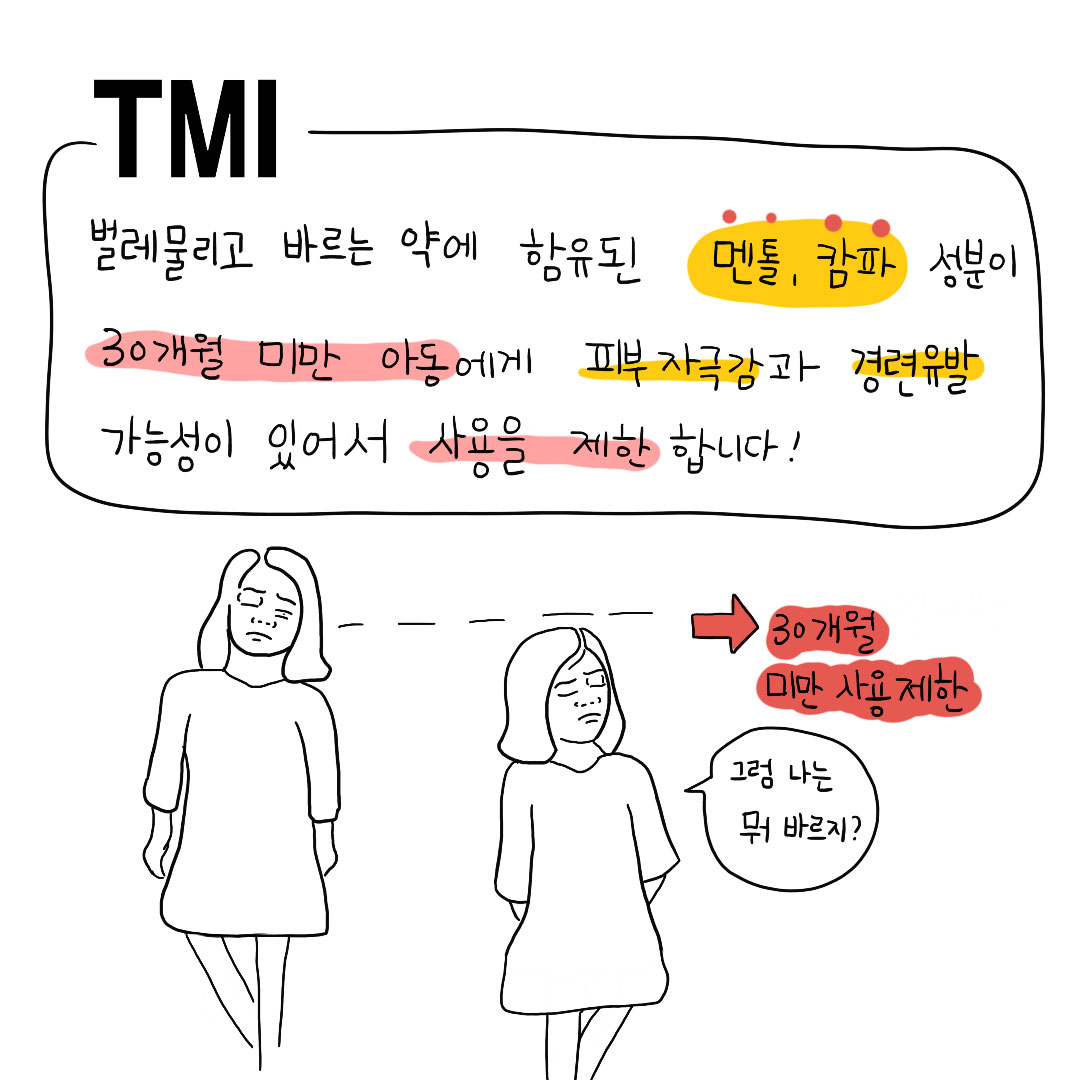 TMI
벌레물리고 바르는 약에 함유된 멘톨, 캄파 성분이
30개월 미만 아동에게 피부 자극감과 경련유발
가능성이 있어서 사용을 제한 합니다!
30개월
미만 사용제한
그럼 나는
뭐 바르지?